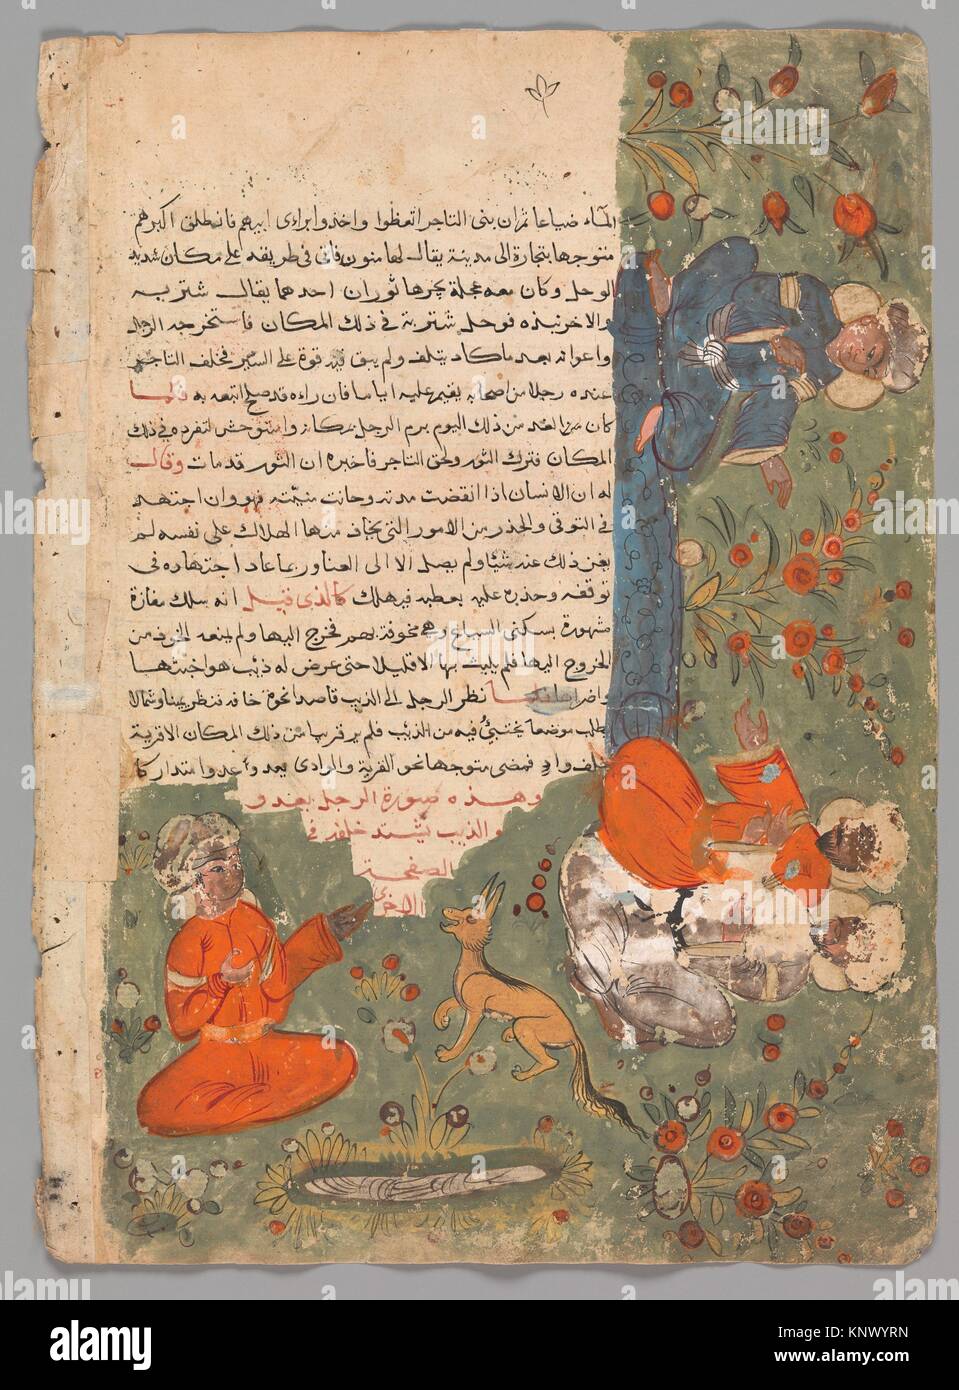 الماء ضياعا ثم ان بنى التاجر اتعظوا واخذوا براى ابيهم فانطلق اكبرهم
متوجها بتجارة الى مدينة يقال لها منون فاتى فى طريقه على مكان شديد
الوحل وكان معه عجلة يجرها ثوران احدهما يقال شتربه
والاخر بندبه فوحل شتربة فى ذلك المكان فاستخرجه الرجل
واعوانه بعد ما كاد يتلف ولم يبق فيه قوة على السير فخلف التاجر
عنده رجلا من اصحابه يقيم عليه اياما فان راه قد صلح اتبعه به فلما
كان من ذلك اليوم برم الرجل بمكانه واستوحش لتفرده فى ذلك
المكان فترك الثور ولحق التاجر فاخبره ان الثور قد مات وقال
له ان الانسان اذا انقضت مدته وحانت منيّته فهو وان اجتهد
فى التوقى والحذر من الامور التى يخاف منها الهلاك على نفسه لم
يغن ذلك عنه شيئا ولم يصل الا الى العنا وربما عاد اجتهاده فى
توقفه وحذره عليه يعطبه فيهلك كالذى قيل انه سلك مفازة
مشهورة بسكنى السباع وهى مخوفة بهم فخرج اليها ولم يمنعه الخوف من
الخروج اليها فلم يلبث بها الا قليلا حتى عرض له ذئب هو اخبثها
واضراها فلما نظر الرجل الى الذيب قاصدا نحوه خافه فنظر يمينا وشمالا
يطلب موضعا يختبئ فيه من الذئب فلم ير قريبا من ذلك المكان الا قرية
خلف واد فمضى متوجها نحو القرية والوادى يعدو
وهذه صورة الرجل يعدو
والذيب يشتد خلفه فى
الصفحة
الاخرى
alamy
Image ID: KNWYRN
www.alamy.com